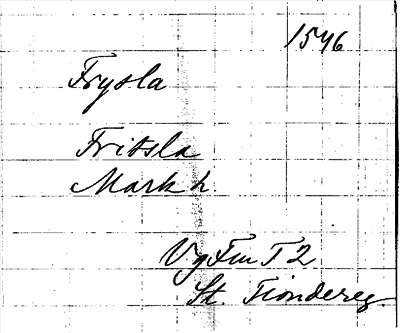 1546
Frysla
Fritsla
Mark h
Vg Fur T 2
St. Tiondereg.